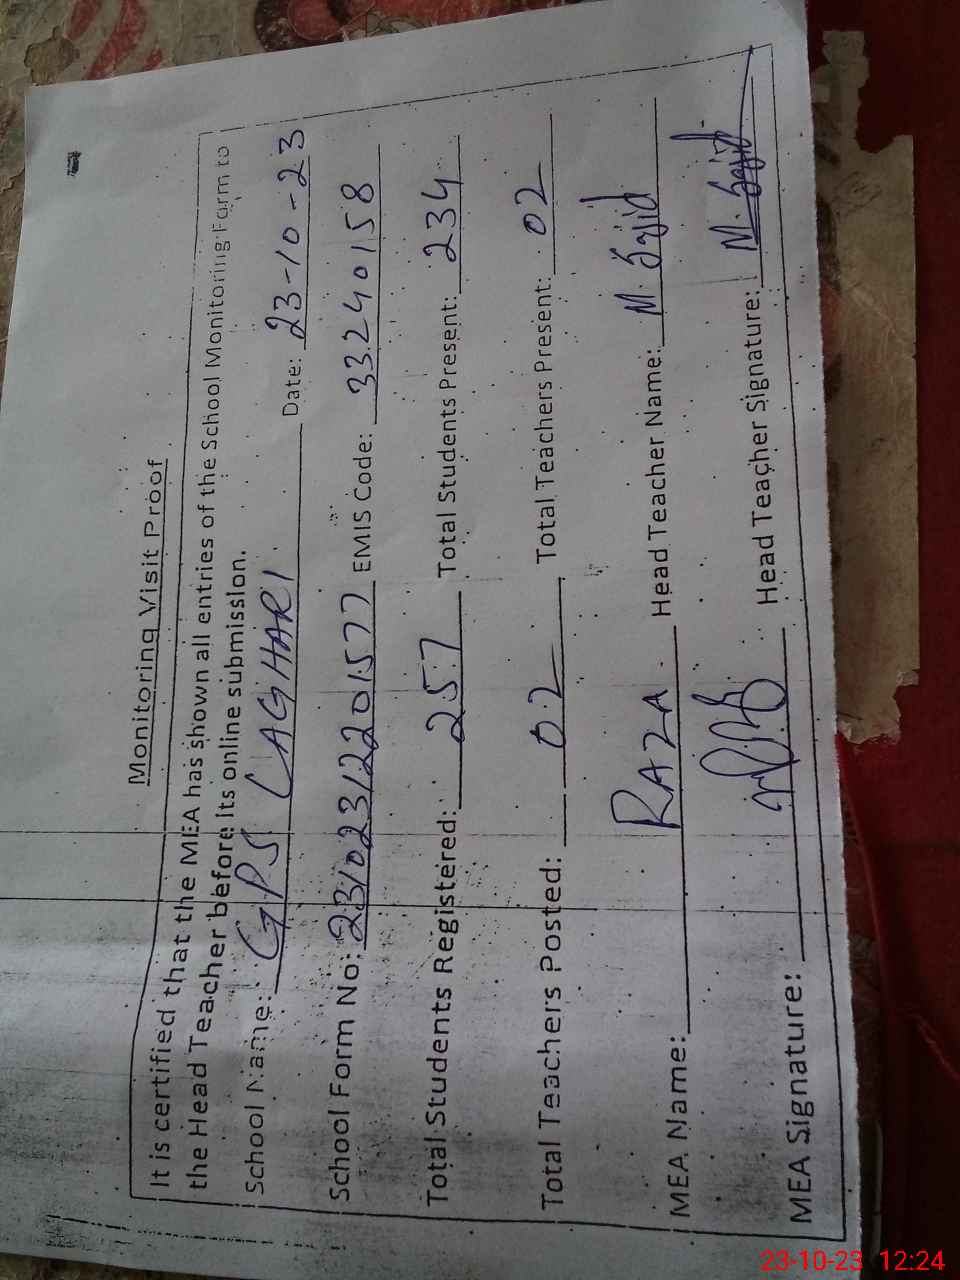 Monitoring Visit Proof
It is certified that the MEA has shown all entries of the School Monitoring Form to
the Head Teacher before its online submission.
School Name: GPS LAGHARI Date: 23-10-23
School Form No: 23102312201577 EMIS Code: 33240158
Total Students Registered: 257 Total Students Present: 234
Total Teachers Posted: 02 Total Teachers Present: 02
MEA Name: RAZA Head Teacher Name: M. Sajid
MEA Signature: Head Teacher Signature: M. Sajid
23-10-23 12:24